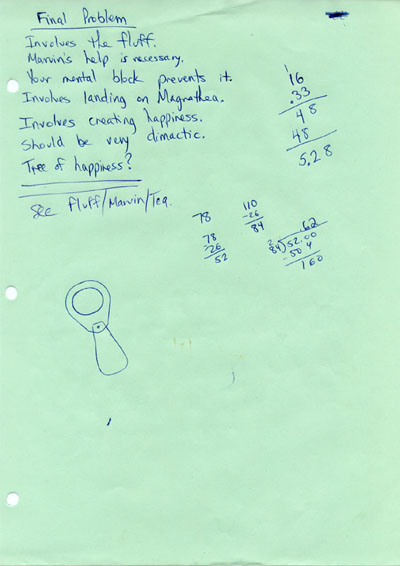 Final Problem
Involves the fluff.
Marvin's help is necessary.
Your mental block prevents it.
Involves landing on Magrathea.
Involves creating happiness.
Should be very climactic.
Tree of happiness?
See Fluff/Marvin/Tea.
1
16
.33
48
48
5.28
78
110
-26
84
78
-26
52
.62
84)52.00
-50 4
160